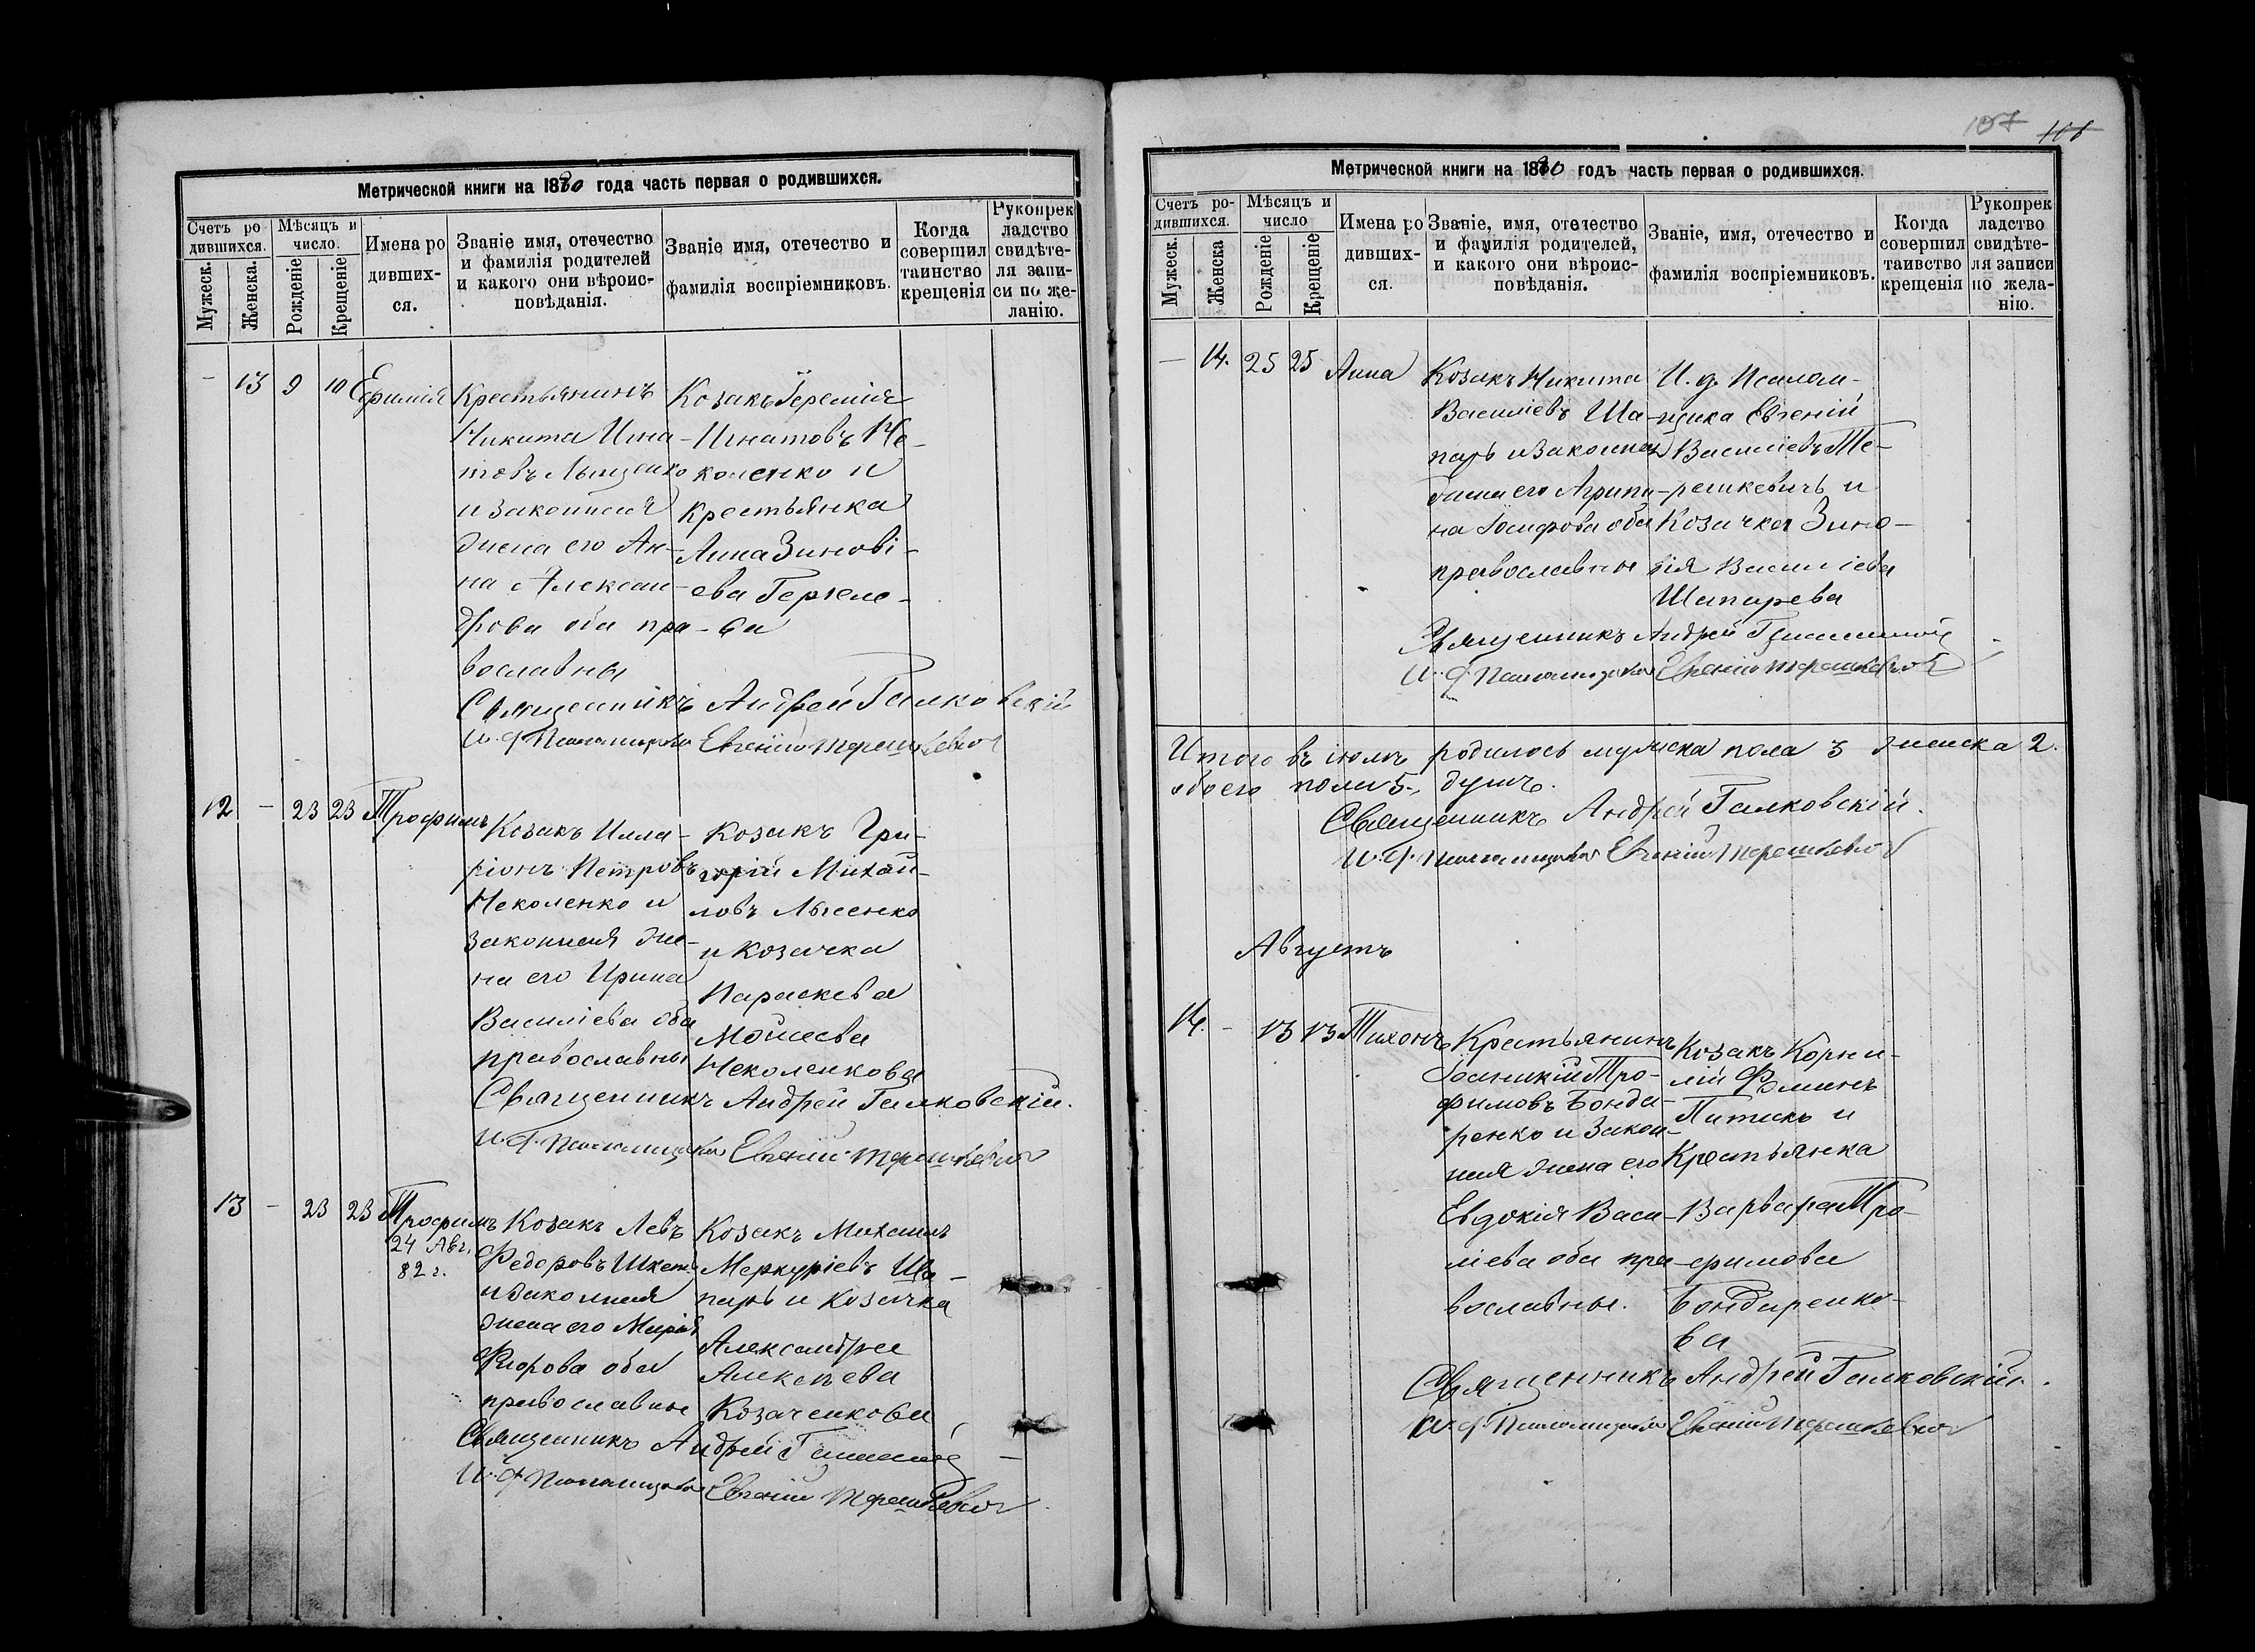 Метрической книги на 1880 года часть первая о родившихся.
Счетъ ро-
дившихся.
Мужеск.
Женска.
Мѣсяцъ и
число.
Рожденіе
Крещеніе
Имена ро
дивших-
ся.
Званіе имя, отечество
и фамилія родителей
и какого они вѣроис-
повѣданія.
Званіе имя, отечество и
фамилія воспріемниковъ.
Когда
совершил
таинство
крещенія
Рукопрек
ладство
свидѣте-
ля запи-
си по же-
ланію.
- 13 9 10 Ефимія
Крестьянинъ
Никита Игна-
товъ Лыщенко
и законная
жена его Ан-
на Алексан-
дрова оба пра-
вославны
Козакъ Іеремія
Игнатовъ Не-
коленко и
Крестьянка
Анна Зинові-
ева
ва
Священникъ Андрей Галковскій
И. д. Псаломщика Евгеній Терешкевичъ
12 - 23 23 Трофимъ
Козакъ Илла-
ріонъ Петровъ
Неколенко и
законная же-
на его Ирина
Василіева оба
православны
Козакъ Гри-
горій Михай-
ловъ Лысенко
и Козачка
Параскева
Мойсеева
Неколенкова
Священникъ Андрей Галковскій.
И. д. Псаломщика Евгеній Терешкевичъ
13 - 23 23 Трофимъ
24 Авг.
82 г.
Козакъ Левъ
Федоровъ
и законная
жена его Марія
оба
православные
Козакъ Михаилъ
Меркуріевъ Ша-
паръ и Козачка
Александра
Алексѣева
Козаченкова
Священникъ Андрей Галковскій
И. д. Псаломщика Евгеній Терешкевичъ
107 108
Метрической книги на 1880 годъ часть первая о родившихся.
Счетъ ро-
дившихся.
Мужеск.
Женска
Мѣсяцъ и
число
Рожденіе
Крещеніе
Имена ро
дивших-
ся.
Званіе, имя, отечество
и фамилія родителей,
и какого они вѣроис-
повѣданія.
Званіе, имя, отечество и
фамилія воспріемниковъ.
Когда
совершил
таивство
крещенія
Рукопрек
ладство
свидѣте-
ля записи
по жела-
нію.
- 14. 25 25 Анна
Козакъ Никита
Василіевъ Ша-
паръ и законная
жена его Агрипи-
на Іосифова оба
православные
И. д. Псалом-
щика Евгеній
Василіевъ Те-
решкевичъ и
Козачка Зино-
вія Василіева
Шапарева
Священникъ Андрей Галковскій
И. д. Псаломщика Евгеній Терешкевичъ
Итого въ іюлѣ родилось мужска пола 3 женска 2.
обоего пола 5 душъ.
Священникъ Андрей Галковскій.
И. д. Псаломщика Евгеній Терешкевичъ
Августъ
14. - 13 13 Тихонъ
Крестьянинъ
Іоанникій Тро-
фимовъ Бонда-
ренко и Закон-
ная жена его
Евдокія Васи-
ліева оба пра-
вославные.
Козакъ Корни-
лій Фоминъ
и
Крестьянка
Варвара Тро-
фимова
Бондаренко-
ва
Священникъ Андрей Галковскій.
И. д. Псаломщика Евгеній Терешкевичъ